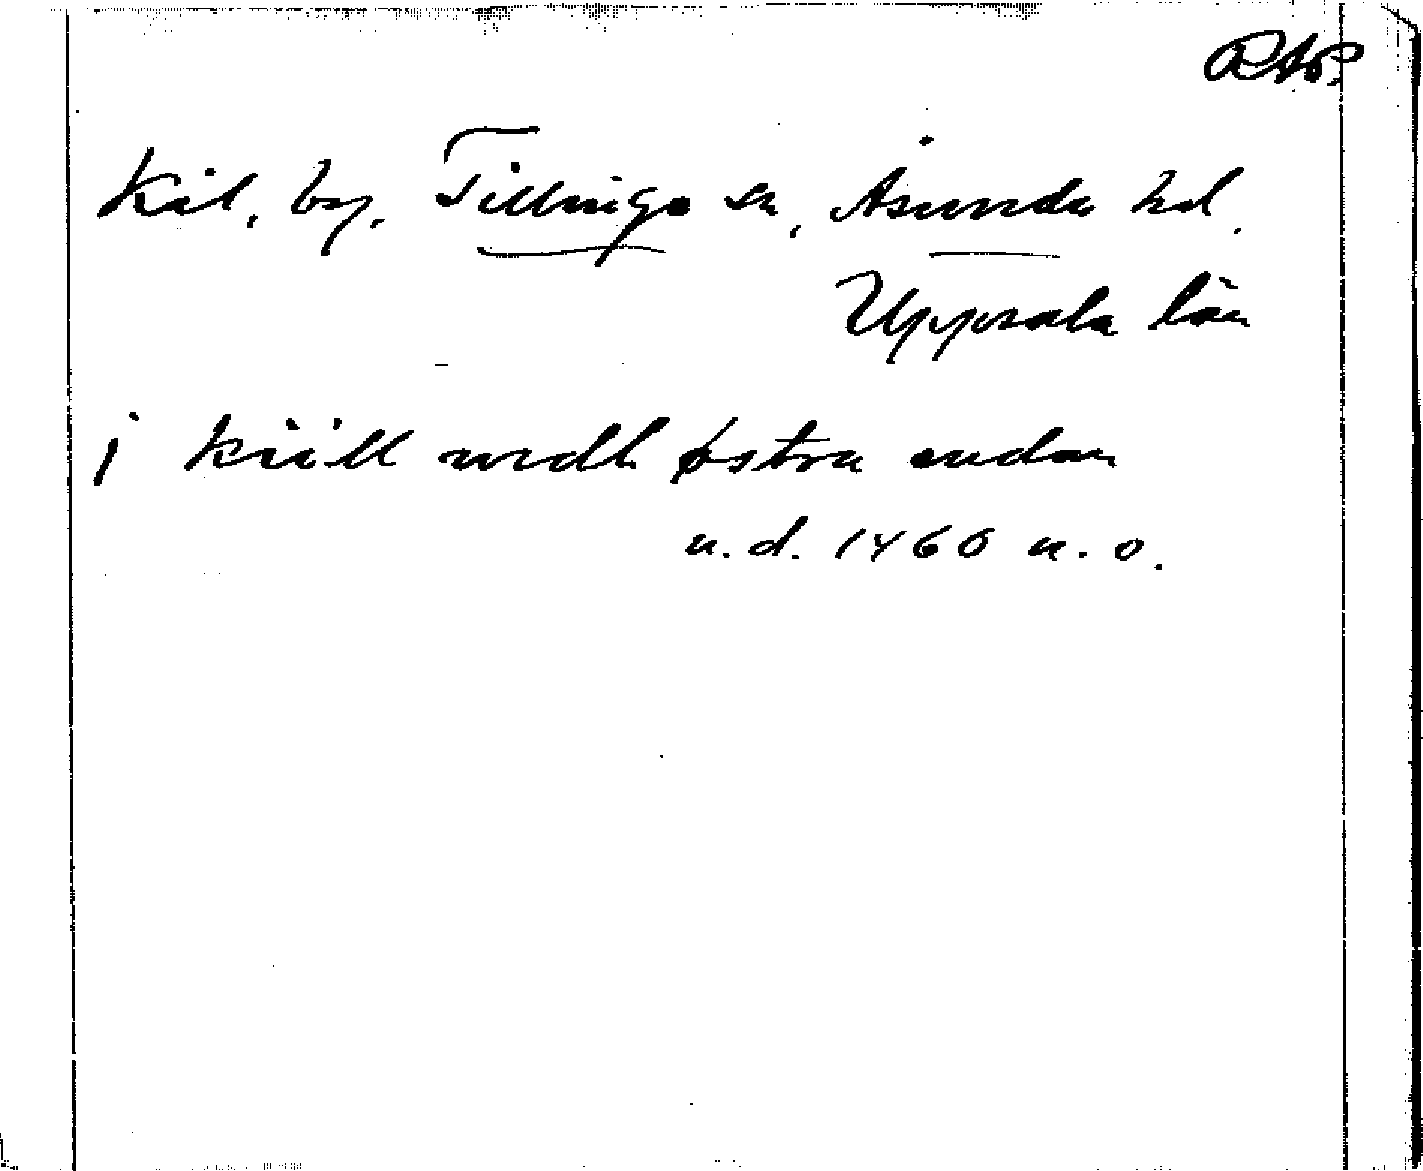 RAP
Kil, by, Tillinge sn, Åsunda hd.
Uppsala län
j kiill vedh østra endan
u.d. 1460 u. o.